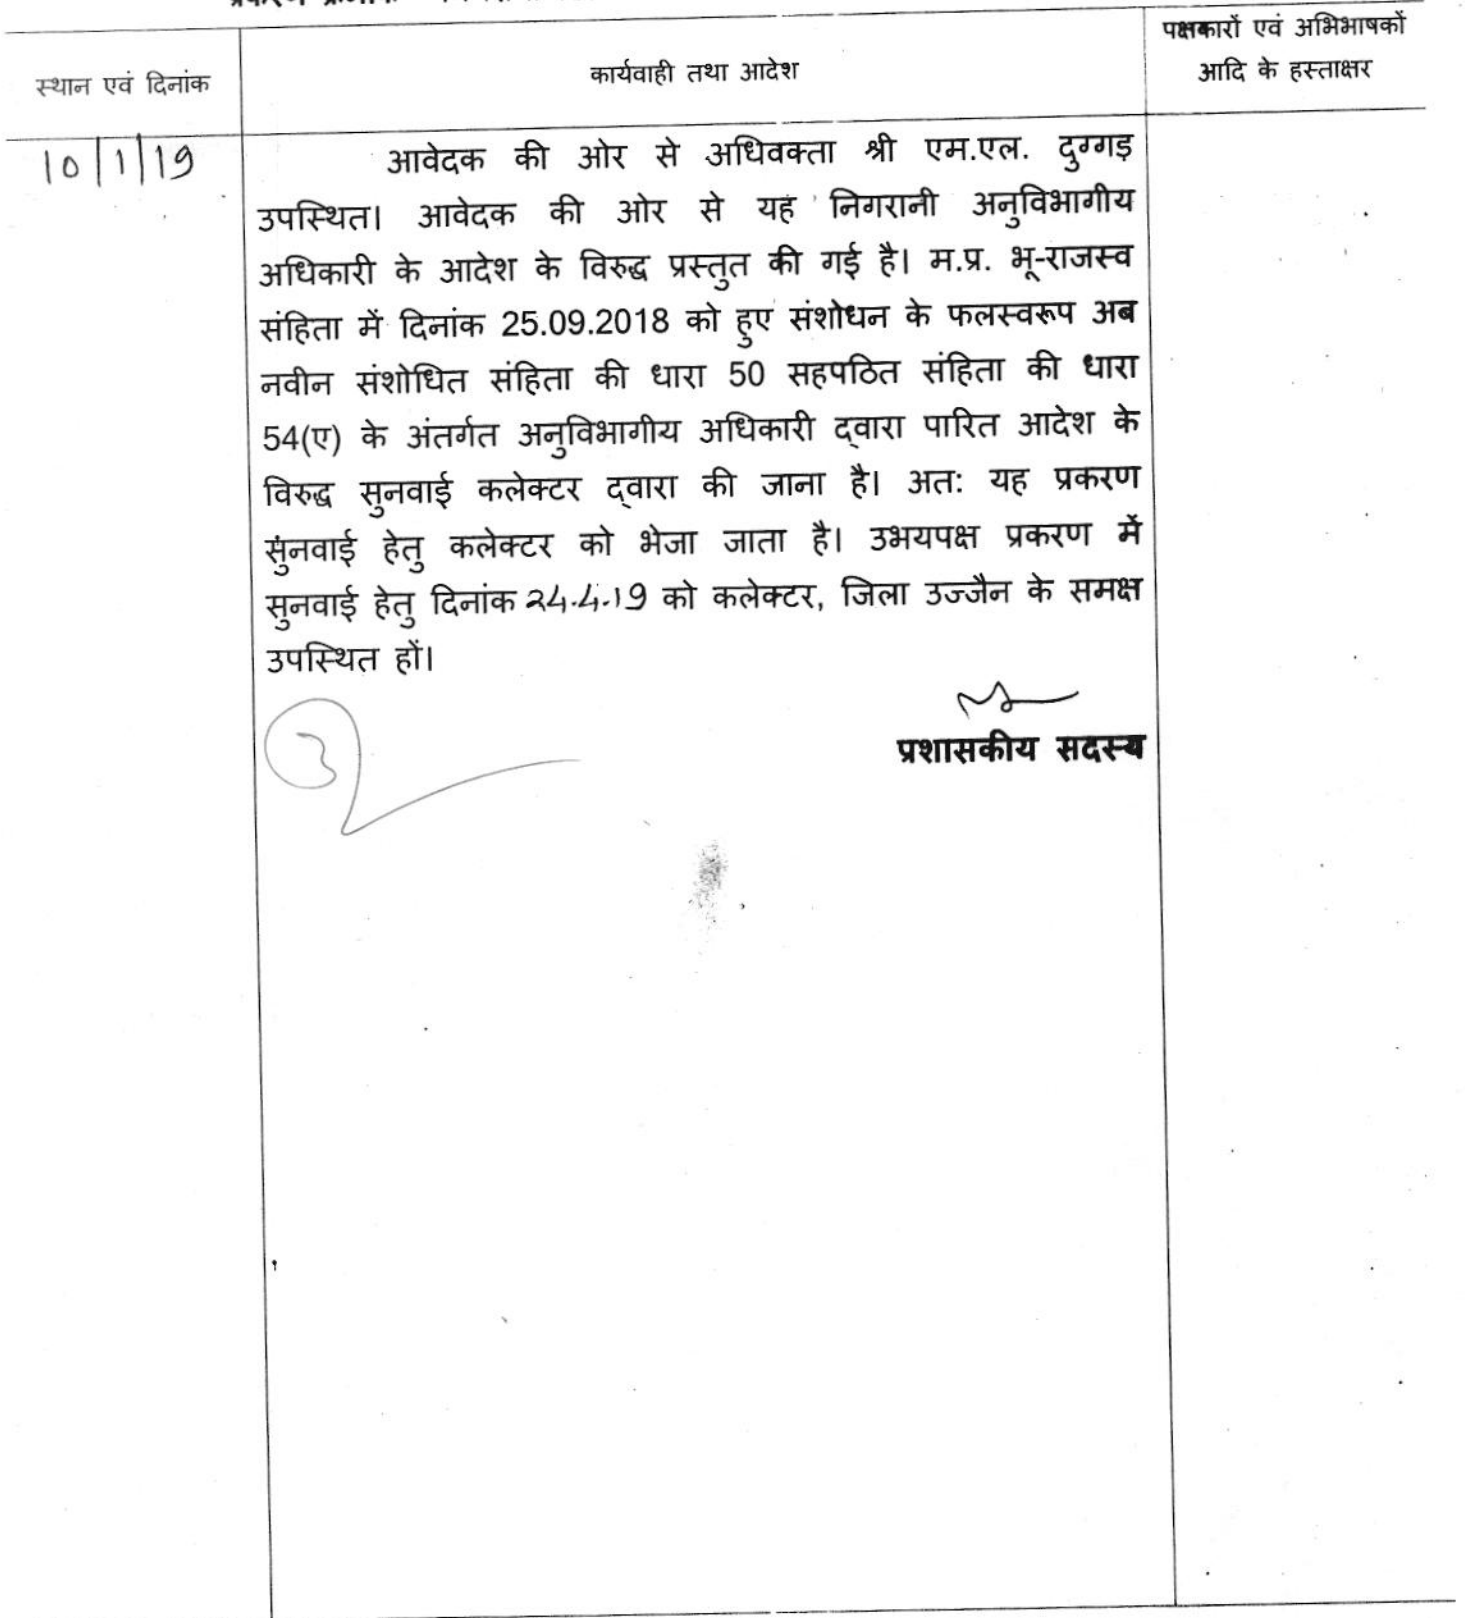 स्थान एवं दिनांक
कार्यवाही तथा आदेश
पक्षकारों एवं अभिभाषकों
आदि के हस्ताक्षर
10/1/19
आवेदक की ओर से अधिवक्ता श्री एम.एल. दुग्गड़
उपस्थित। आवेदक की ओर से यह निगरानी अनुविभागीय
अधिकारी के आदेश के विरुद्ध प्रस्तुत की गई है। म.प्र. भू-राजस्व
संहिता में दिनांक 25.09.2018 को हुए संशोधन के फलस्वरूप अब
नवीन संशोधित संहिता की धारा 50 सहपठित संहिता की धारा
54(ए) के अंतर्गत अनुविभागीय अधिकारी द्वारा पारित आदेश के
विरुद्ध सुनवाई कलेक्टर द्वारा की जाना है। अतः यह प्रकरण
सुनवाई हेतु कलेक्टर को भेजा जाता है। उभयपक्ष प्रकरण में
सुनवाई हेतु दिनांक 24.4.19 को कलेक्टर, जिला उज्जैन के समक्ष
उपस्थित हों।
प्रशासकीय सदस्य